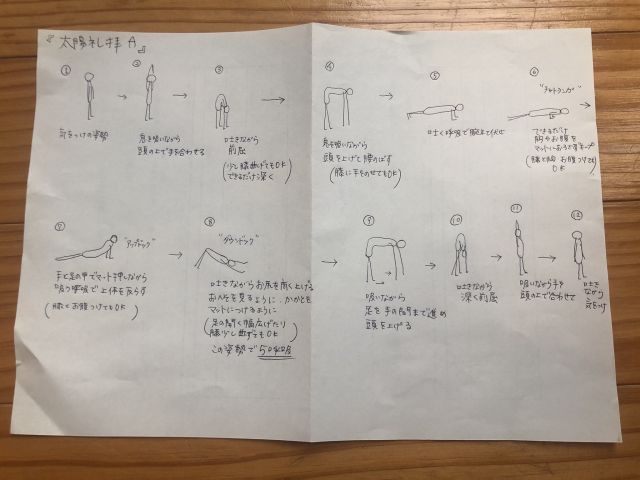 『太陽礼拝 A』
①
気をつけの姿勢
②
息を吸いながら
頭の上で手を合わせる
③
吐きながら
前屈
(少し膝曲げてもOK
できるだけ深く)
④
息を吸いながら
頭を上げて腰のばす
(膝に手をのせてもOK)
⑤
吐く呼吸で腕立て伏せ
⑥
"チャトランガ"
できるだけ
胸やお腹を
マットにおろさずキープ
(膝と胸 お腹つけても
OK)
⑦
"アップドッグ"
手と足の甲でマット押しながら
吸う呼吸で上体を反らす
(膝とお腹つけてもOK)
⑧
"ダウンドッグ"
吐きながらお尻を高く上げる
おへそを見るように かかとを
マットにつけるように
(足の間隔 幅広げたり
膝少し曲げてもOK)
この姿勢で5呼吸
⑨
吸いながら
足を手の間まで進め
頭を上げる
⑩
吐きながら
深く前屈
⑪
吸いながら手を
頭の上で合わせて
⑫
吐き
ながら
気をつけ